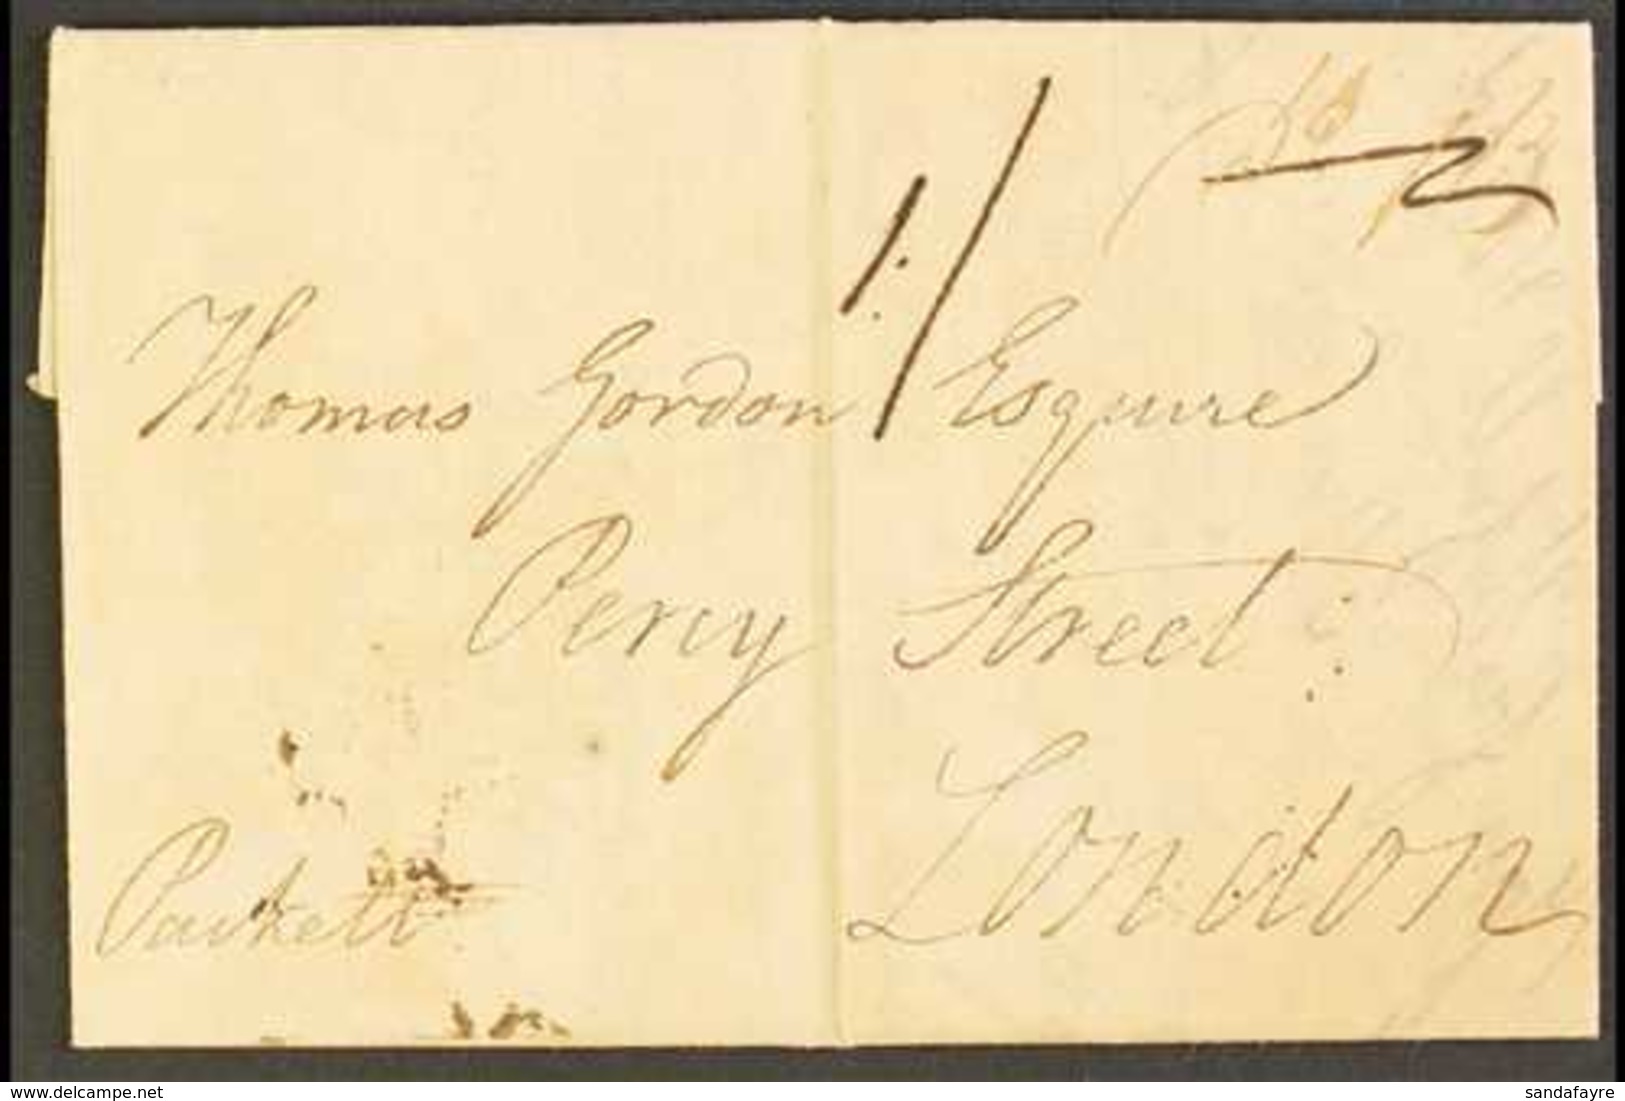 1/
Thomas Gordon Esquire
Percy Street
London
Packett
sandafayre
delcampe.net